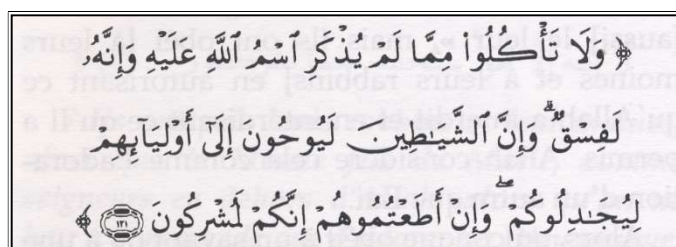 ﴿ وَلَا تَأْكُلُوا۟ مِمَّا لَمْ يُذْكَرِ ٱسْمُ ٱللَّهِ عَلَيْهِ وَإِنَّهُۥ
لَفِسْقٌۗ وَإِنَّ ٱلشَّيَٰطِينَ لَيُوحُونَ إِلَىٰٓ أَوْلِيَآئِهِمْ
لِيُجَٰدِلُوكُمْۖ وَإِنْ أَطَعْتُمُوهُمْ إِنَّكُمْ لَمُشْرِكُونَ ١٢١ ﴾